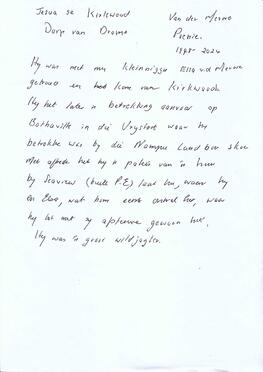 Jesua se Kirkwood Van der Merwe
Dorp van Drome Pienie.
1945 - 2024
Hy was met my kleinniggie Elsa v.d Merwe
getroud en het kom van Kirkwood.
Hy het later 'n betrekking aanvaar op
Bothaville in die Vrystaat waar hy
betrokke was by die Nampo Landbou skou
Met aftrede het hy 'n plekie van 'n huis
by Seaview (buite P.E) laat bou, waar hy
en Elsa, wat hom eerste ontval het, waar
hy tot met sy afsterwe gewoon het.
Hy was 'n groot wildjagter.